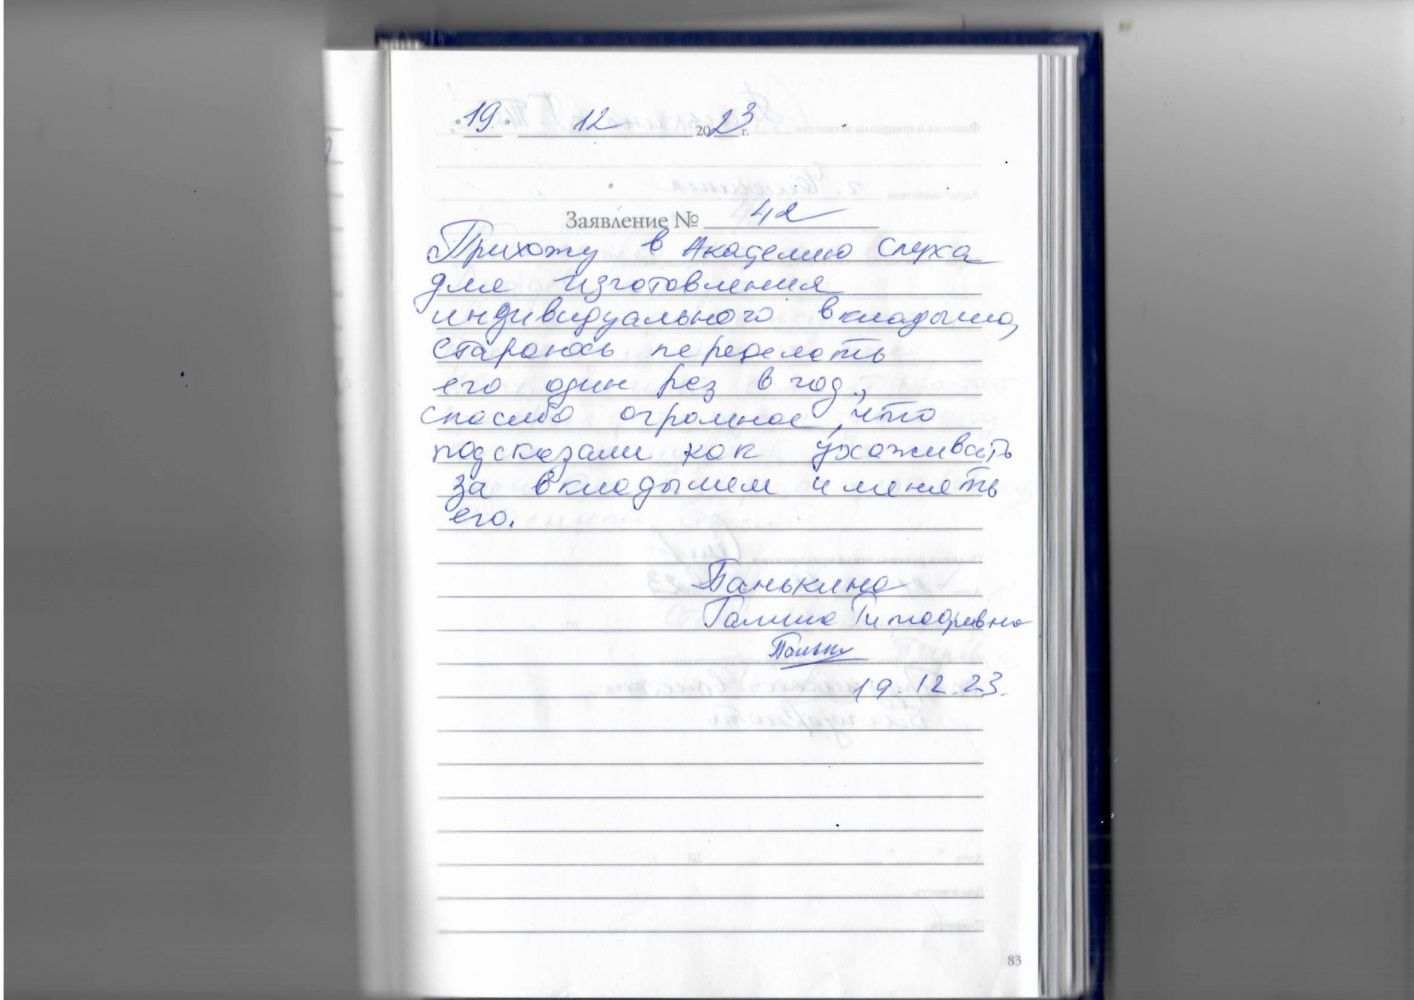 «19» 12 2023 г.
Заявление № 42
Прихожу в Академию слуха
для изготовления
индивидуального вкладыша,
стараюсь переделать
его один раз в год,
спасибо огромное, что
подсказали как ухаживать
за вкладышем и менять
его.
Панькина
Галина Тимофеевна
Паньк
19.12.23.
83